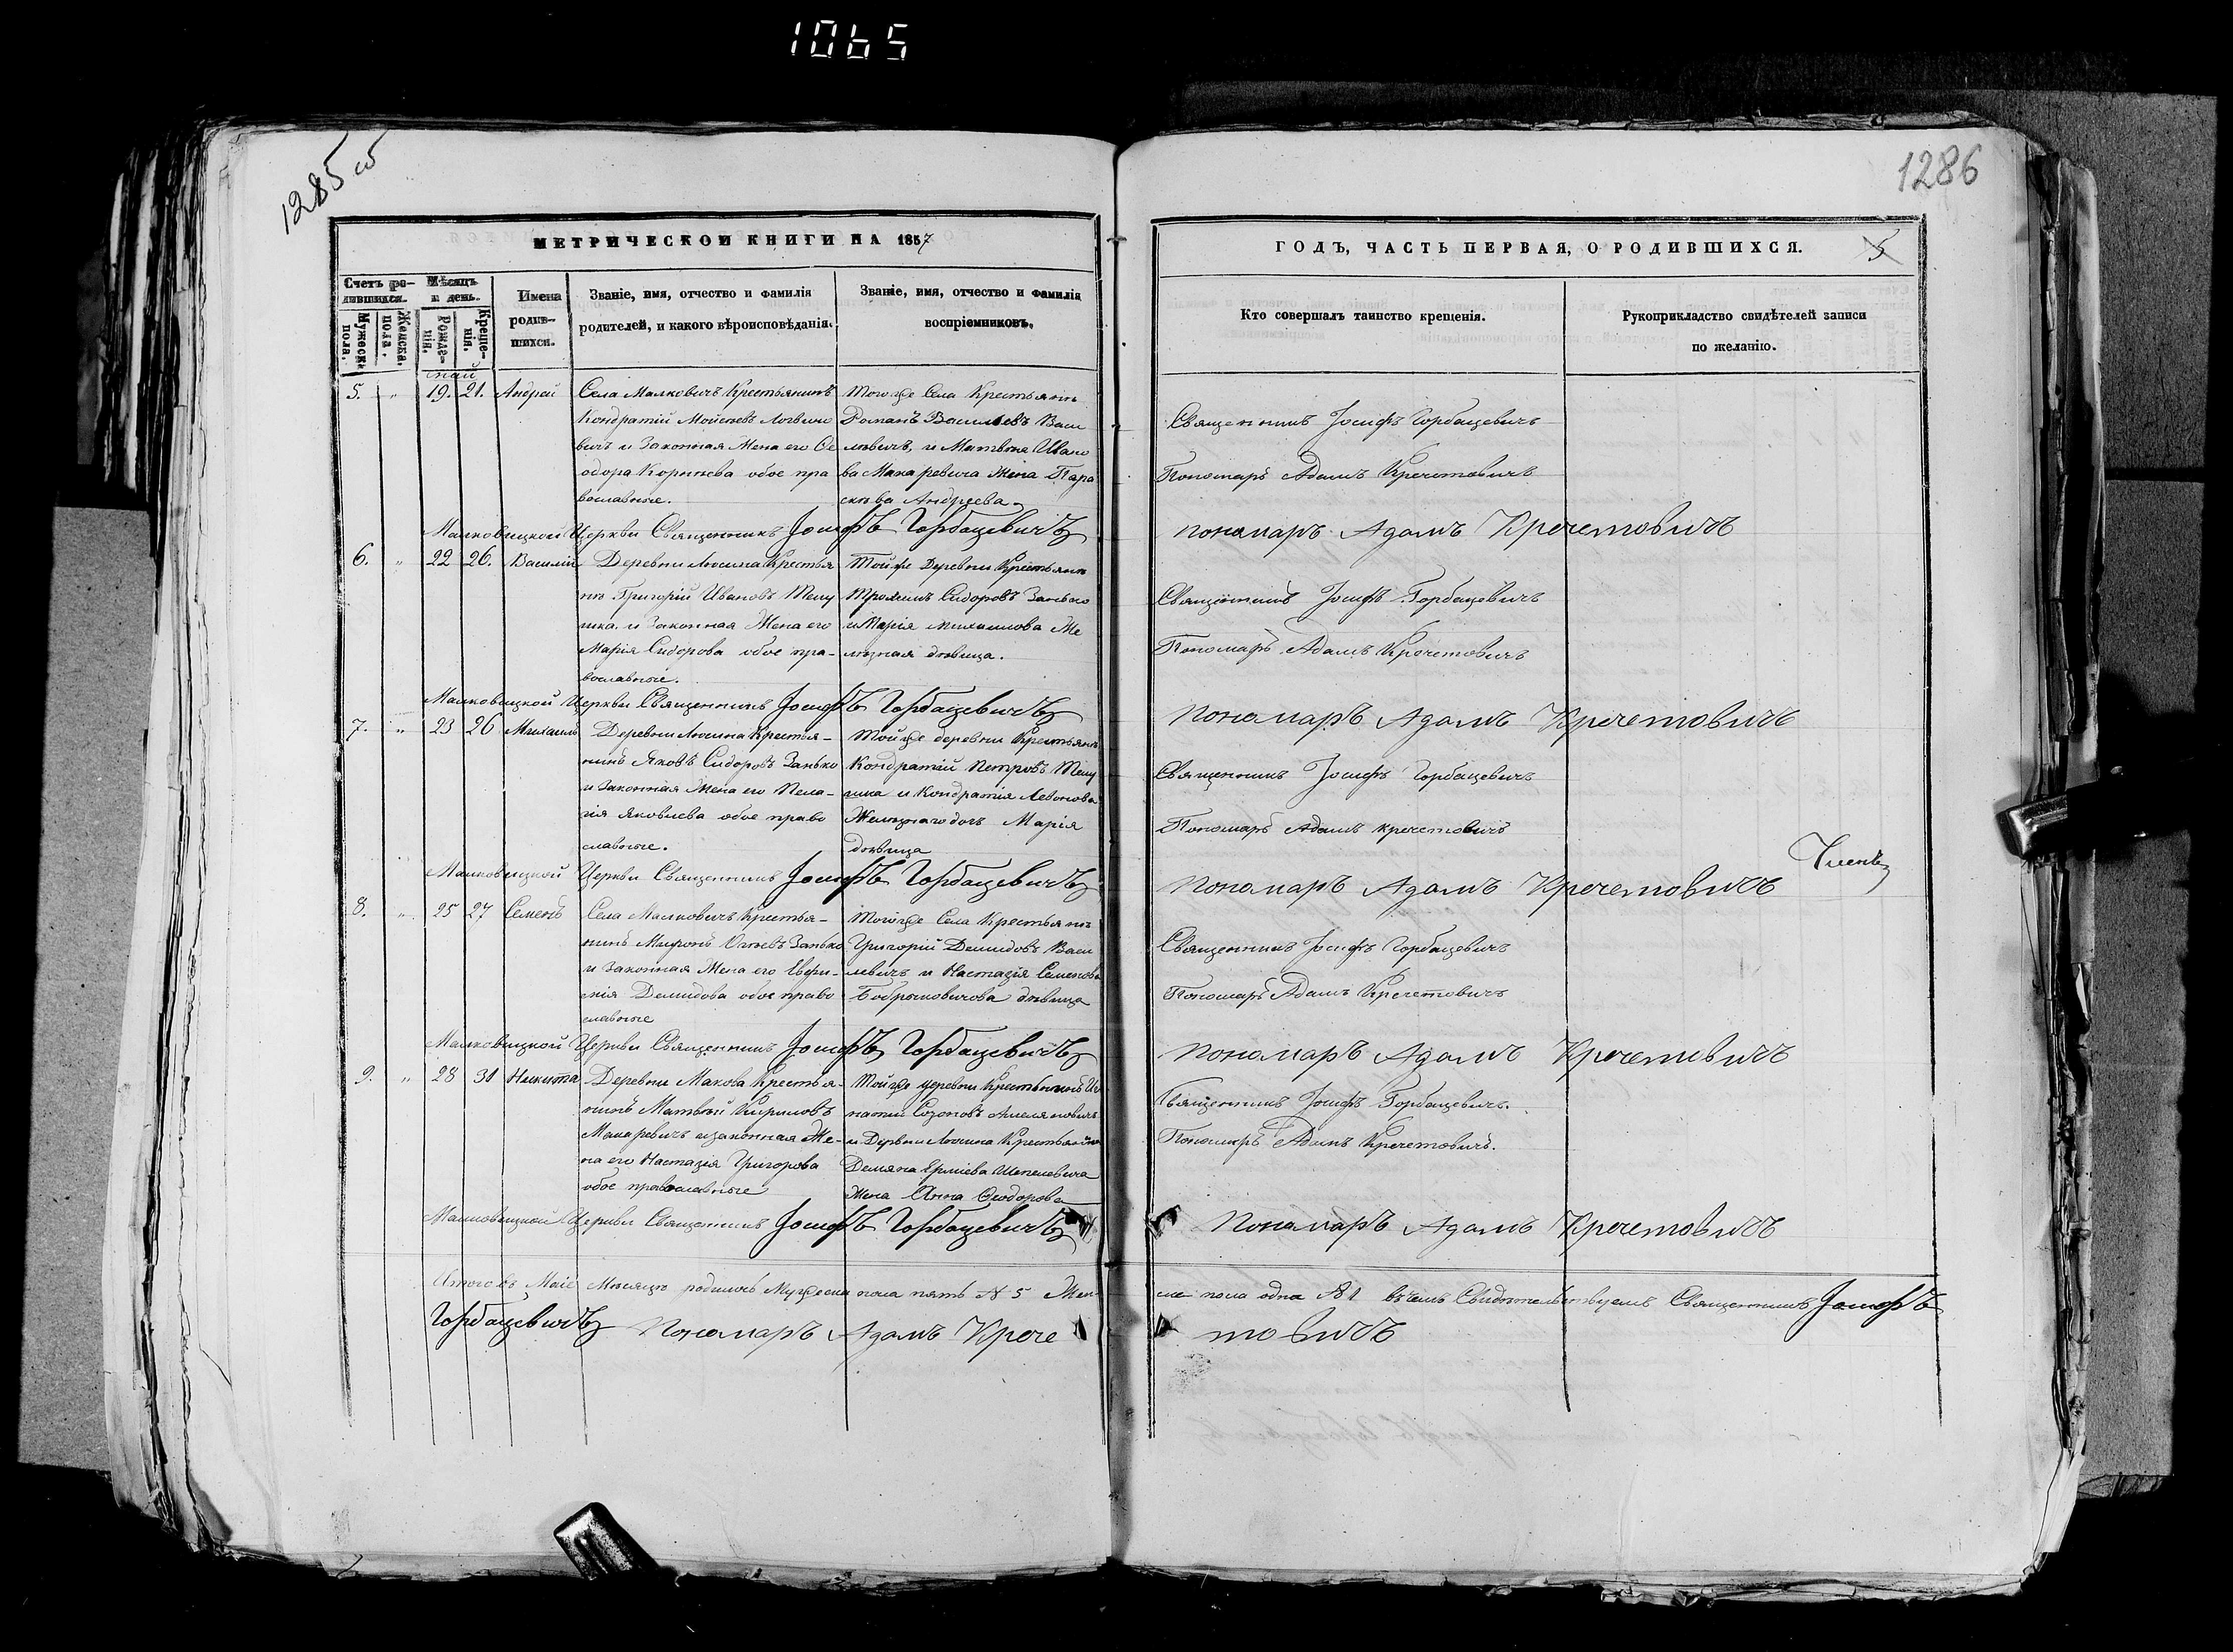 1065
1285 об
1286
МЕТРИЧЕСКОЙ КНИГИ НА 1857
ГОДЪ, ЧАСТЬ ПЕРВАЯ, О РОДИВШИХСЯ.
5
Счетъ ро-
дившихся.
Мужеска пола.
Женска. пола.
Мѣсяцъ
и день.
Рожде-
нія.
Креще-
нія.
Имена
родив-
шихся.
Званіе, имя, отчество и фамилія
родителей, и какого вѣроисповѣданія.
Званіе, имя, отчество и фамилія
воспріемниковъ.
Кто совершалъ таинство крещенія.
Рукоприкладство свидѣтелей записи
по желанію.
май
5. " 19. 21. Андрей
Села Малковичъ Крестьянинъ
Кондратій Мойсеевъ
вичъ и Законная Жена его Ѳе
одора Корнѣева обое пра
вославные.
Тогоже Села Крестьянинъ
Романъ Васильевъ Васи
левичъ, и Матвѣя Ивано
ва Макаревича Жена Пара
скева Андреева
Священникъ Іосифъ Горбацевичъ
Пономарь Адамъ Кречетовичъ
Малковицкой Церкви Священникъ Іосифъ Горбацевичъ
Пономаръ Адамъ Кречетовичъ
6. " 22 26. Василій
Деревни Люсина Крестья
нинъ Григорій Ивановъ
и Законная Жена его
Марія Сидорова обое пра-
вославные.
Тойже Деревни Крестьянинъ
Трохимъ Сидоровъ Занько
и Марія Михаилова Же
лѣзная дѣвица.
Священникъ Іосифъ Горбацевичъ
Пономарь Адамъ Кречетовичъ
Малковицкой Церкви Священникъ Іосифъ Горбацевичъ
Пономаръ Адамъ Кречетовичъ
7. " 23 26 Михаилъ
Деревни Люсина Крестья-
нинъ Яковъ Сидоровъ Занько
и Законная Жена его Пела-
гія Яковлева обое право
славные.
Тойже деревни Крестьянинъ
Кондратій Петровъ
и Кондратія
Желѣзнаго дочь Марія
дѣвица
Священникъ Іосифъ Горбацевичъ
Пономарь Адамъ Кречетовичъ
Членъ
Малковицкой Церкви Священникъ Іосифъ Горбацевичъ
Пономаръ Адамъ Кречетовичъ
8. " 25 27 Семенъ
Села Малковичъ Крестья-
нинъ Мифонъ Занько
и Законная Жена его Евфи-
мія Демидова обое право
славные
Тогоже Села Крестьянинъ
Григорій Демидовъ Васи
левичъ и Настазія Семенова
Бобрыковичова дѣвица
Священникъ Іосифъ Горбацевичъ
Пономарь Адамъ Кречетовичъ
Малковицкой Церкви Священникъ Іосифъ Горбацевичъ
Пономаръ Адамъ Кречетовичъ
9. " 28 31 Никита
Деревни Макова Крестья-
нинъ Матвѣй Кириловъ
Макаревичъ изаконная Же-
на его Настазія Григорова
обое православные
Тойже деревни Крестьянинъ Иг
натій Созоновъ
и Деревни Люсина Крестьянина
Демяна Ермiева Шепелевича
Жена Анна Ѳеодорова
Священникъ Іосифъ Горбацевичъ.
Пономарь Адамъ Кречетовичъ.
Малковицкой Церкви Священникъ Іосифъ Горбацевичъ
Пономаръ Адамъ Кречетовичъ
Итого въ Маіѣ Мѣсяцѣ родилось Мужеска пола пять № 5 Жен ска пола одна № 1 въчемъ Свидѣтельствуемъ Священникъ Іосифъ
Горбацевичъ Пономаръ Адамъ Крече товичъ